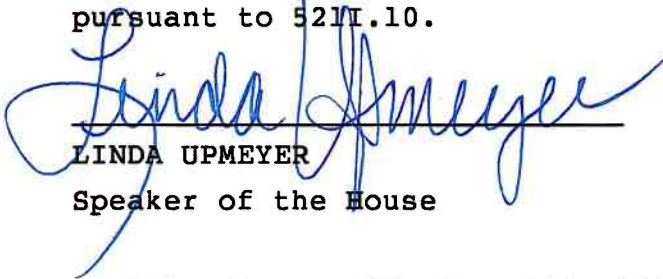 pursuant to 521I.10.
Linda Upmeyer
LINDA UPMEYER
Speaker of the House